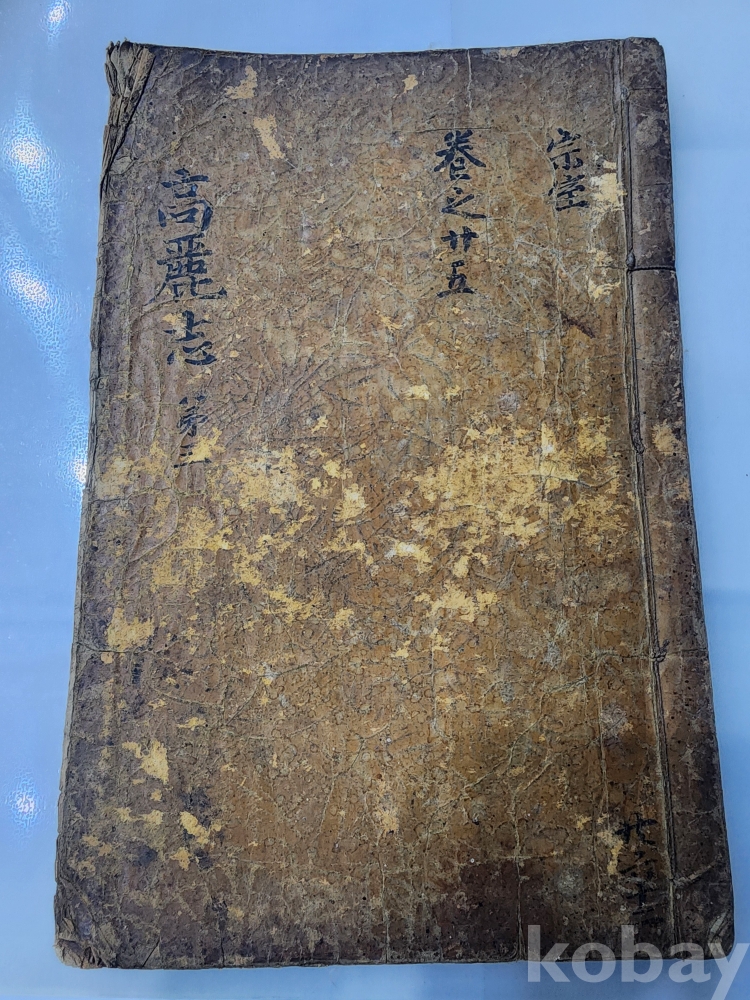 宗室
卷之廿五
高麗志 第三
kobay